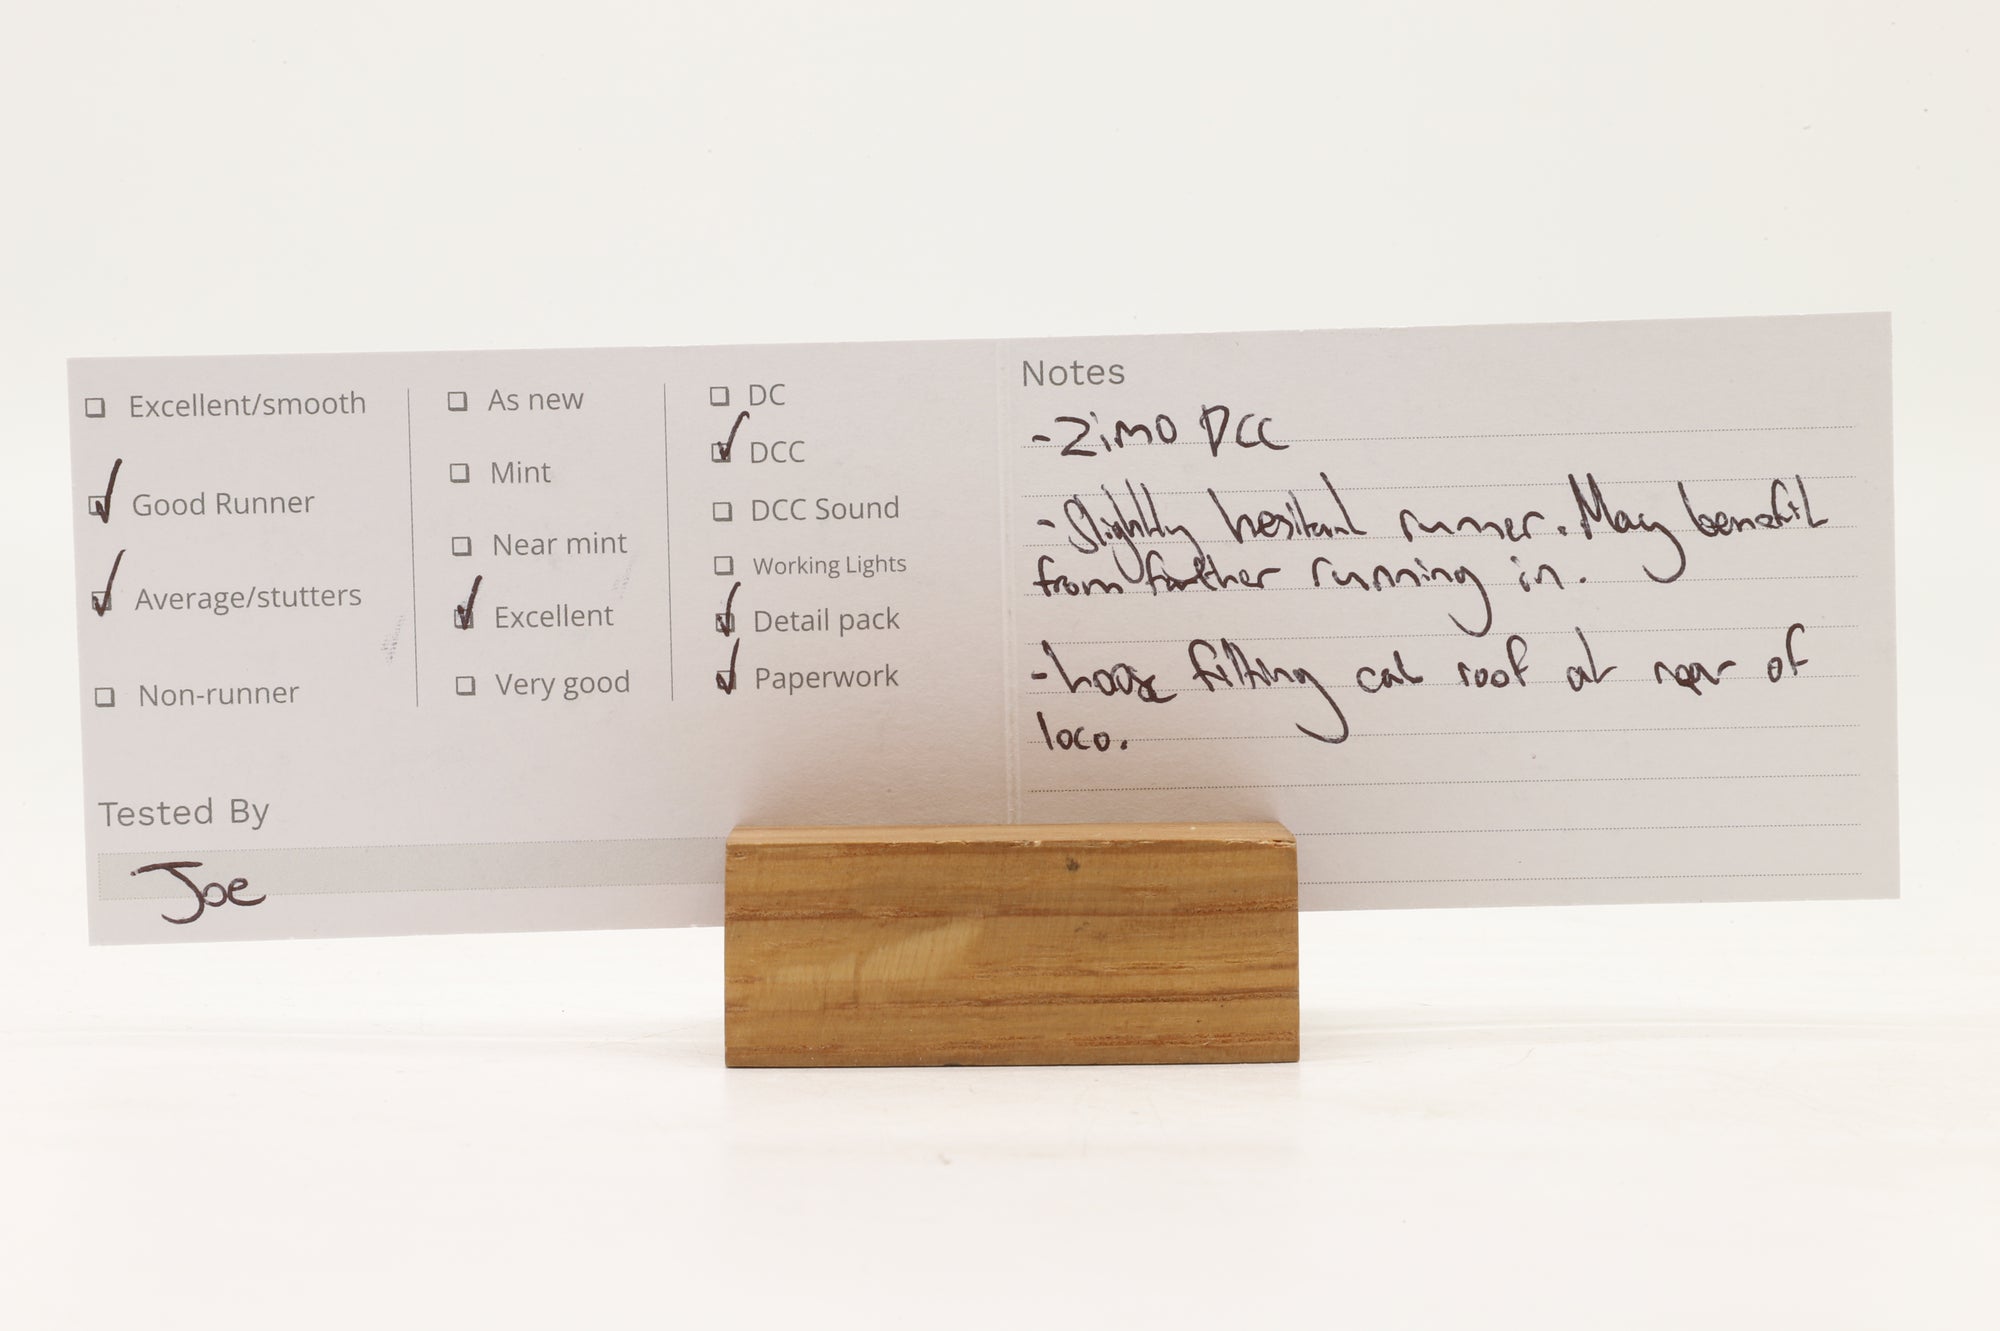 Excellent/smooth
Good Runner
Average/stutters
Non-runner
As new
Mint
Near mint
Excellent
Very good
DC
DCC
DCC Sound
Working Lights
Detail pack
Paperwork
Tested By
Joe
Notes
-Zimo DCC
-Slightly hesitant runner. May benefit
from further running in.
-Loose fitting cab roof at rear of
loco.